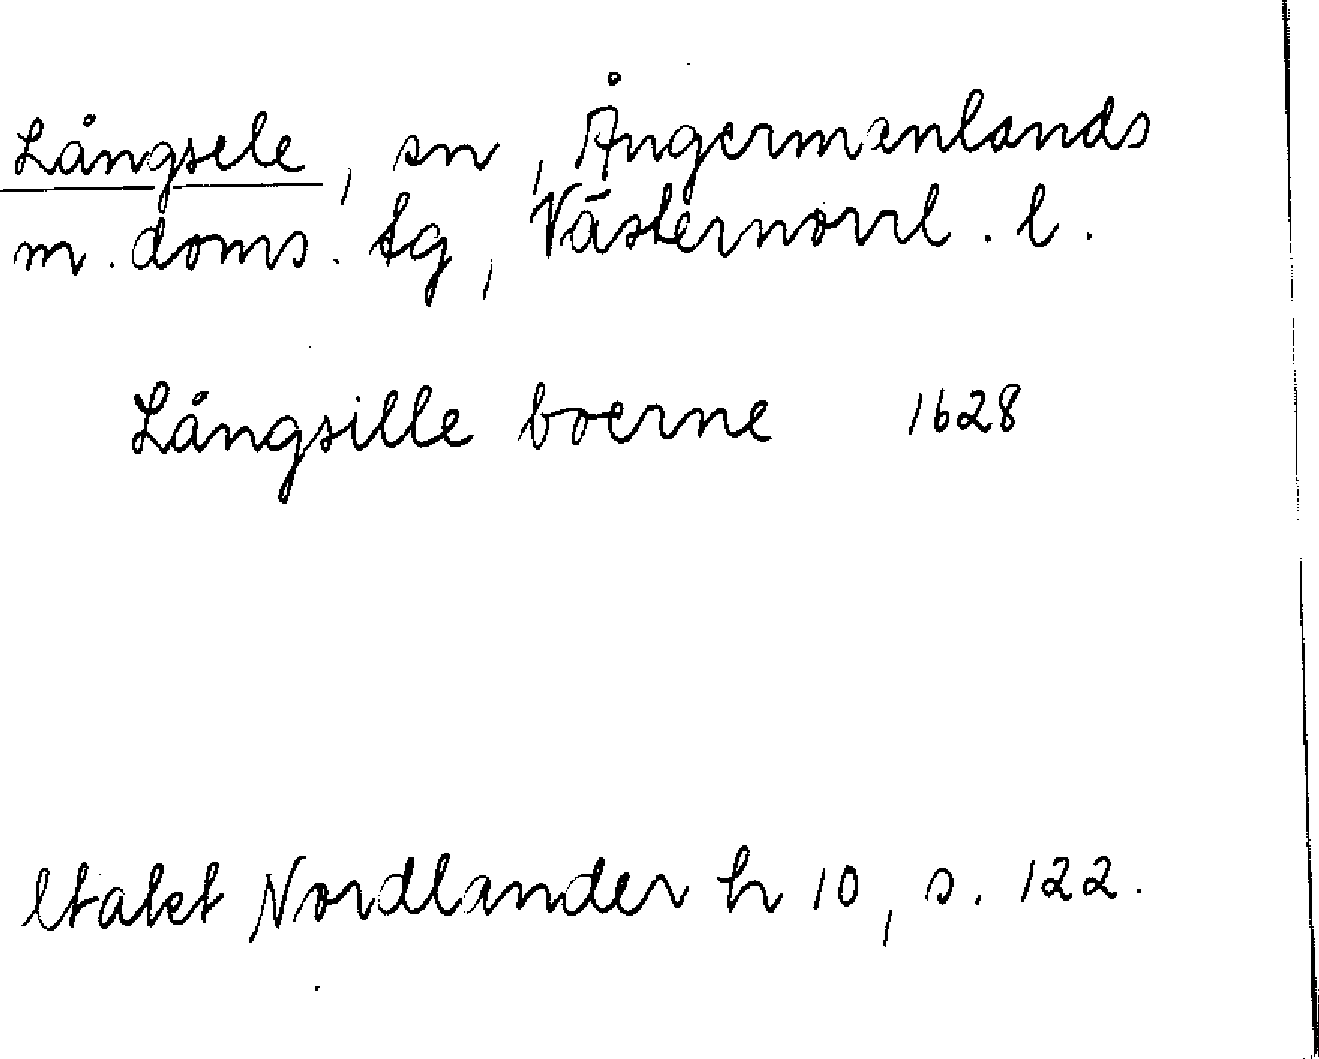 Långsele, sn, Ångermanlands
m. doms. tg, Västernorrl. l.
Långsille boerne 1628
Nordlander h 10, s. 122.